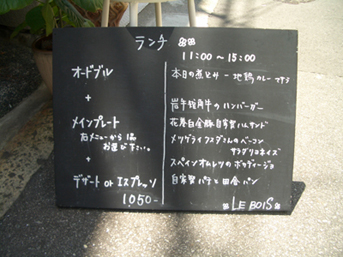 ランチ
11:00 ~ 15:00
オードブル
+
メインプレート
右メニューから1品
お選び下さい。
+
デザート or エスプレッソ
1050-
本日の煮こみ - 地鶏カレー
岩手短角牛のハンバーガー
花巻白金豚自家製ハムサンド
メツゲライクスダさんのベーコン
サラダリヨネーズ
スペインオムレツの
自家製パテと田舎パン
LE BOIS